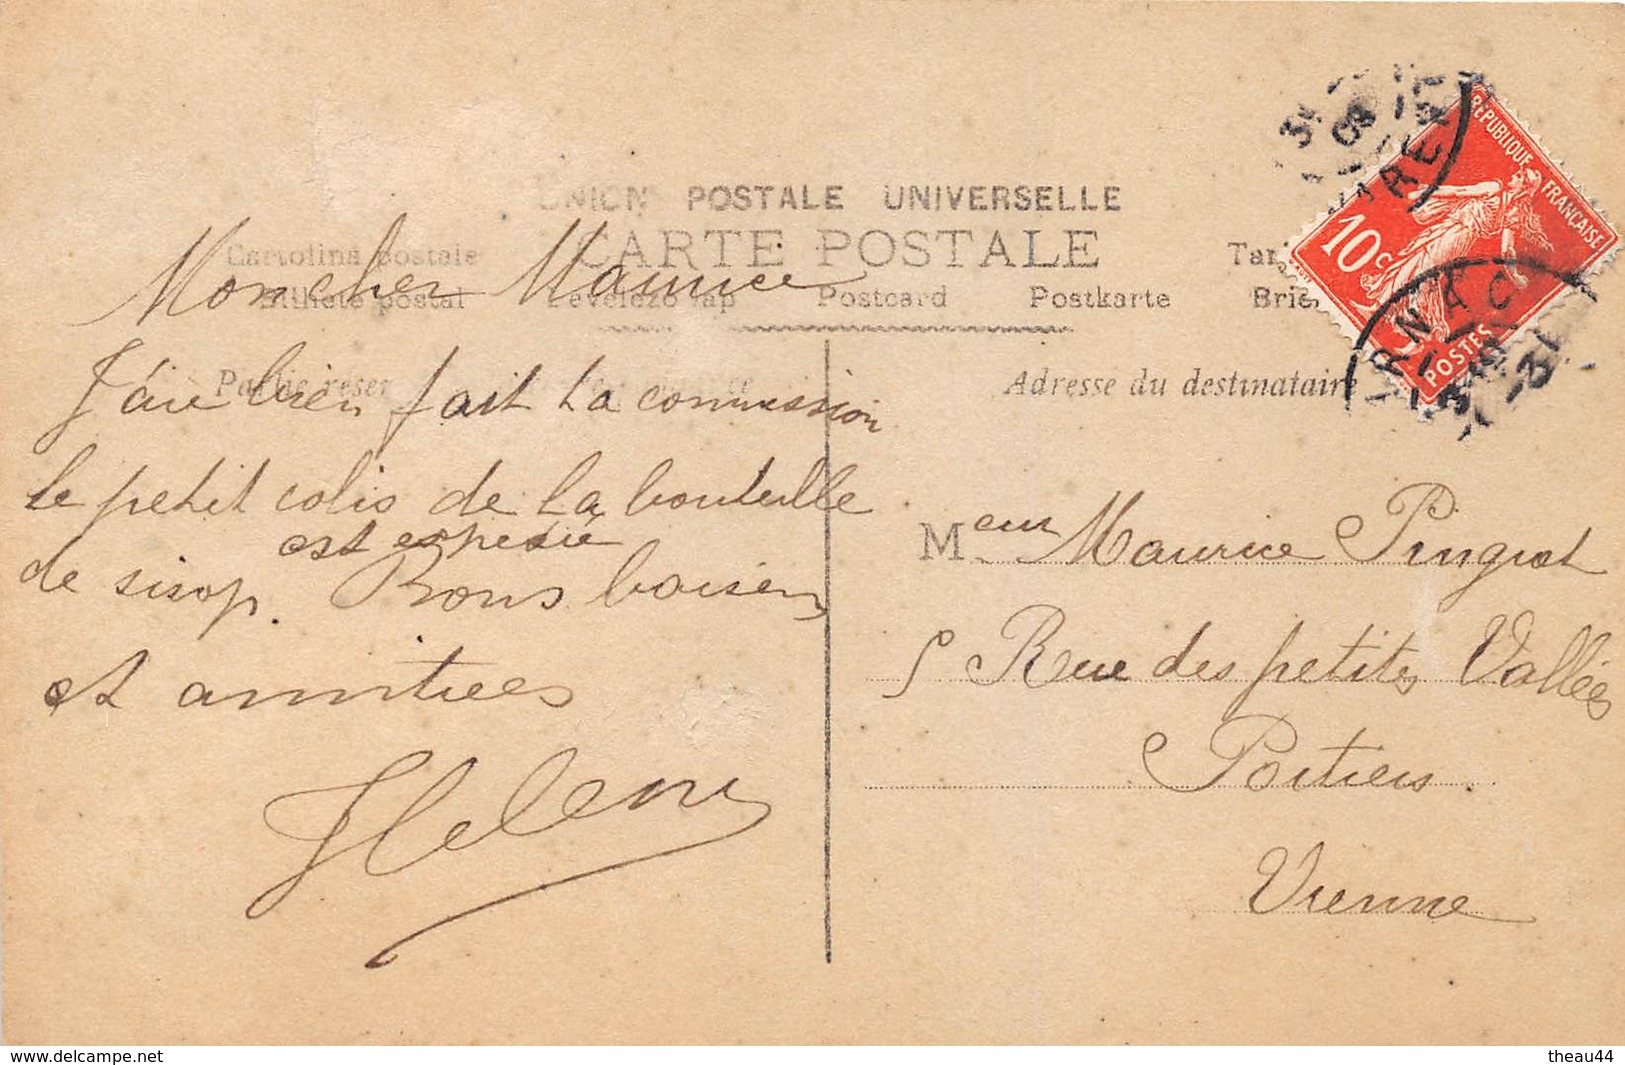 UNION POSTALE UNIVERSELLE
CARTE POSTALE
Cartolina postale
Bilhete postal Levelezo lap Postcard Postkarte
Adresse du destinataire
RÉPUBLIQUE FRANÇAISE
10c
POSTES
Mon cher Maurice
J'ai bien fait ta commission
le petit colis de la bouteille
est expedié
de sirop. Bons baisers
et amitiees
Helene
Meur Maurice Pingrat
5 Rue des petites Vallées
Poitiers
Vienne
www.delcampe.net
theau44